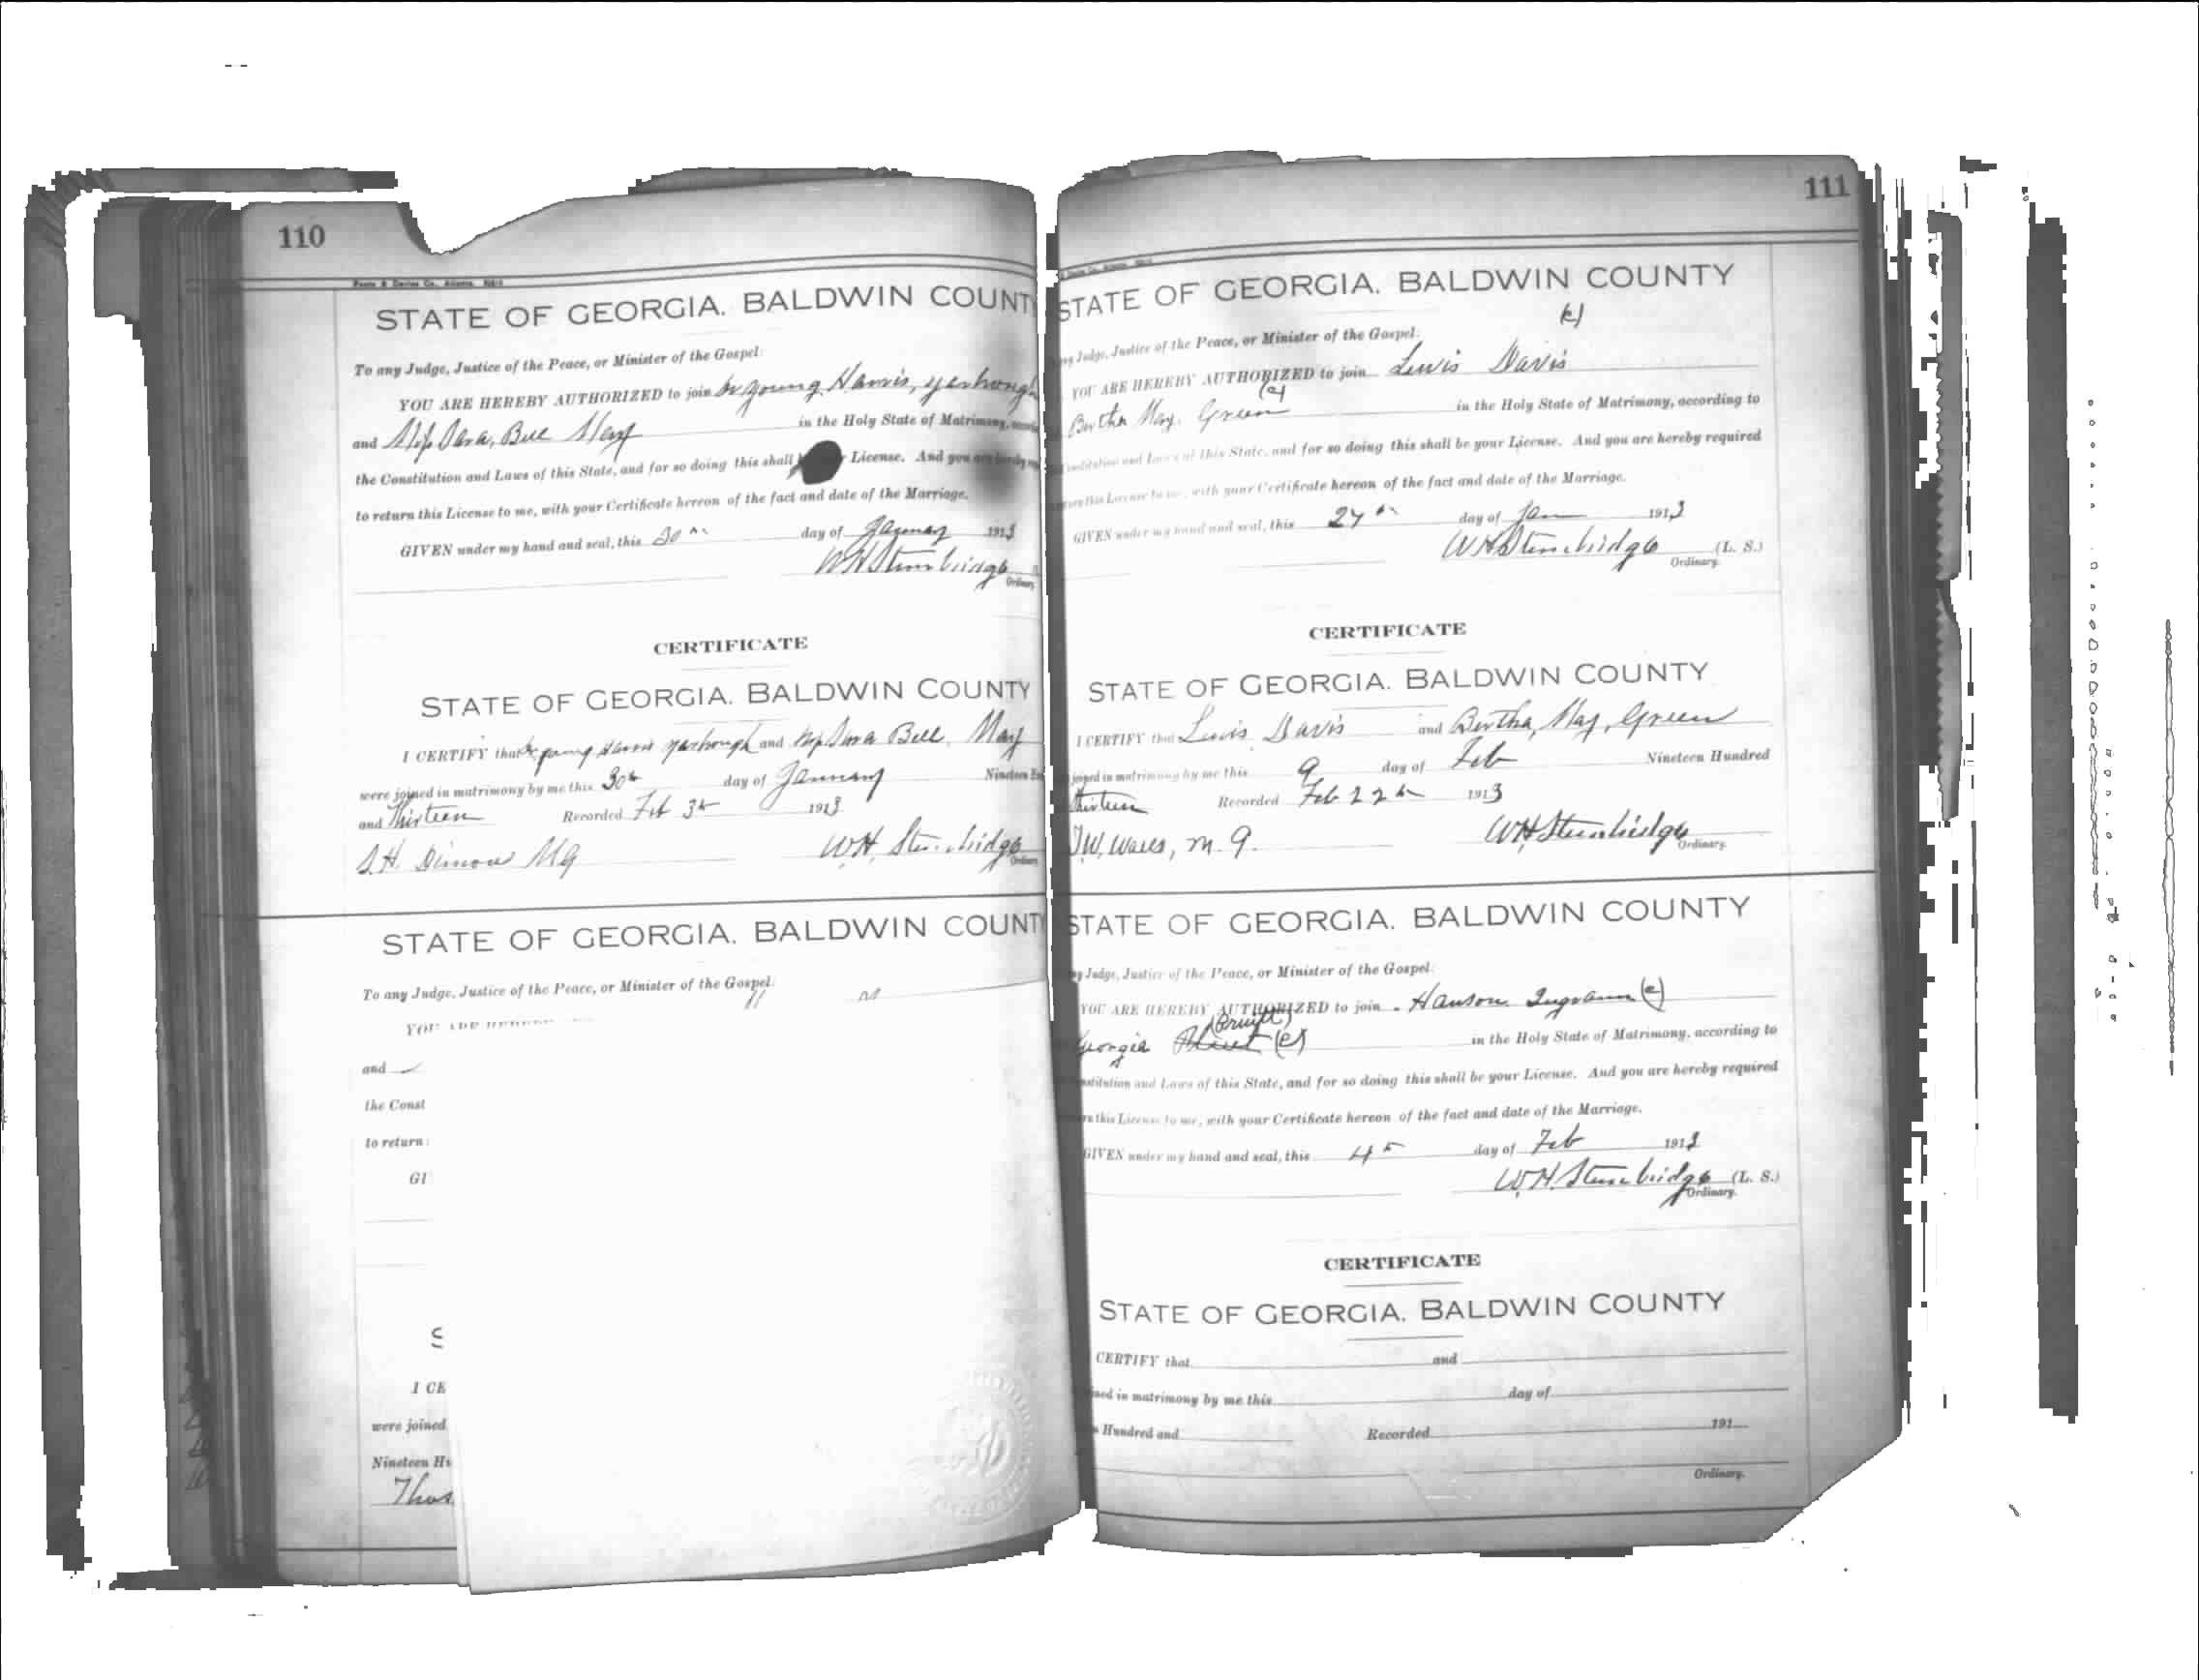 110
STATE OF GEORGIA. BALDWIN COUNT
To any Judge, Justice of the Peace, or Minister of the Gospel:
YOU ARE HEREBY AUTHORIZED to join Dr young Harris, yarhough
and Bell in the Holy State of Matrimony,
the Constitution and Laws of this State, and for so doing this shall License. And you are hereby
to return this License to me, with your Certificate hereon of the fact and date of the Marriage.
GIVEN under my hand and seal, this 30th day of January 1913
WH Stembridge
Ordinary
CERTIFICATE
STATE OF GEORGIA. BALDWIN COUNTY
I CERTIFY that Dr young Harris yarhough and Bell, May
were joined in matrimony by me this 30th day of January Nineteen
and Thirteen Recorded Feb 3rd 1913
S.H. Dimon MG W.H. Stembridge
Ordinary
STATE OF GEORGIA. BALDWIN COUNT
To any Judge, Justice of the Peace, or Minister of the Gospel:
YOU ARE
and
the Const
to return
GI
S
I CE
were joined
Nineteen Hu
Thos
111
STATE OF GEORGIA. BALDWIN COUNTY
(c)
Judge, Justice of the Peace, or Minister of the Gospel:
YOU ARE HEREBY AUTHORIZED to join Lewis Davis
(c)
Bertha May. Green in the Holy State of Matrimony, according to
and Laws of this State, and for so doing this shall be your License. And you are hereby required
this License to me, with your Certificate hereon of the fact and date of the Marriage.
GIVEN under my hand and seal, this 27th day of Jan 1913
WH Stembridge (L. S.)
Ordinary.
CERTIFICATE
STATE OF GEORGIA. BALDWIN COUNTY
I CERTIFY that Lewis Davis and Bertha, May, Green
joined in matrimony by me this 9 day of Feb Nineteen Hundred
Thirteen Recorded Feb 22nd 1913
WH Stembridge
Ordinary.
J.W. Wales, M.G.
STATE OF GEORGIA. BALDWIN COUNTY
Judge, Justice of the Peace, or Minister of the Gospel:
YOU ARE HEREBY AUTHORIZED to join Hanson Ingram (c)
(Pruitt)
Georgia (c) in the Holy State of Matrimony, according to
and Laws of this State, and for so doing this shall be your License. And you are hereby required
this License to me, with your Certificate hereon of the fact and date of the Marriage.
GIVEN under my hand and seal, this 4th day of Feb 1913
W.H. Stembridge (L. S.)
Ordinary.
CERTIFICATE
STATE OF GEORGIA. BALDWIN COUNTY
CERTIFY that and
in matrimony by me this day of
Hundred and Recorded 191
Ordinary.